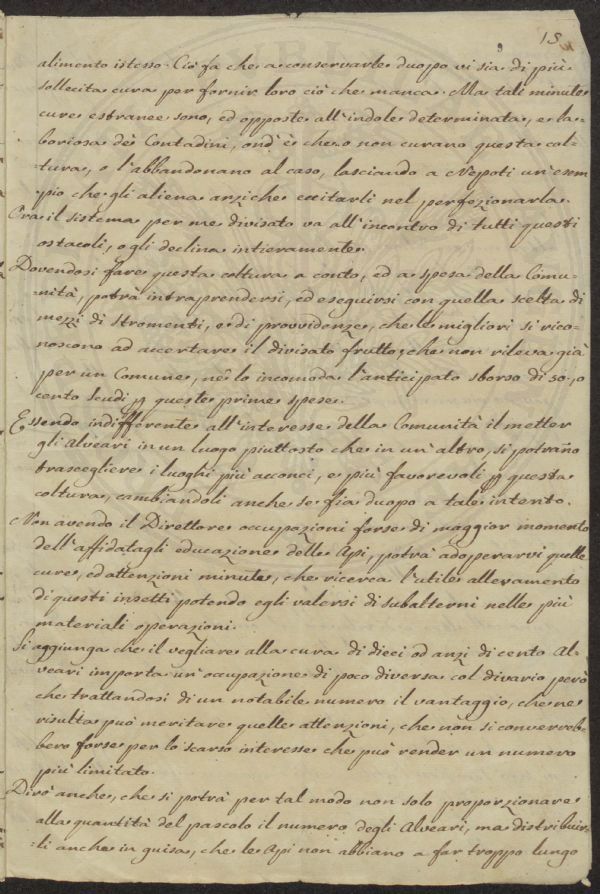 15
alimento istesso. Ciò fa che a conservarle duopo vi sia di più
sollecita cura per fornir loro ciò che manca. Ma tali minute
cure estranee sono, ed opposte all'indole determinata, e la-
boriosa de' Contadini, ond'è che o non curano questa col-
tura, o l'abbandonano al caso, lasciando a Nepoti un esem
pio che gli aliena anziche eccitarli nel perfezionarla.
Ora il sistema per me divisato va all'incontro di tutti questi
ostacoli, o gli declina intieramente.
Dovendosi fare questa coltura a conto, ed a spesa della Comu-
nità, potrà intraprendersi, ed eseguirsi con quella scelta di
mezzi di stromenti, e di provvidenze, che le migliori si rico-
noscono ad accertare il divisato frutto, che non rileva già
per un Comune, nè lo incomoda l'anticipato sborso di 50, o
cento scudi p queste prime spese.
Essendo indifferente all'interesse della Comunità il metter
gli Alveari in un luogo piuttosto che in un'altro, si potrano
trascegliere i luoghi più acconci, e più favorevoli p questa
coltura, cambiandoli anche se fia duopo a tale intento.
Non avendo il Direttore occupazioni forse di maggior momento
dell'affidatagli educazione delle Api, potrà adoperarvi quelle
cure, ed attenzioni minute, che ricerca l'utile allevamento
di questi insetti potendo egli valersi di subalterni nelle più
materiali operazioni.
Si aggiunga che il vegliare alla cura di dieci od anzi di cento Al-
veari importa un'occupazione di poco diversa col divario però
che trattandosi di un notabile numero il vantaggio, che ne
risulta può meritare quelle attenzioni, che non si converreb-
bero forse per lo scarso interesse che può render un numero
più limitato.
Dirò anche, che si potrà per tal modo non solo proporzionare
alla quantità del pascolo il numero degli Alveari, ma distribuir-
li anche in guisa, che le Api non abbiano a far troppo lungo